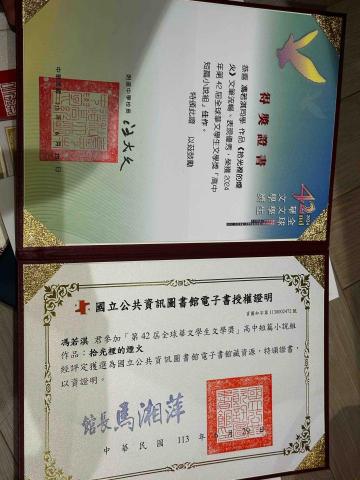 42nd
2024
全球華文學生文學獎
得獎證書
恭喜 馮若淇同學 作品《拾光裡的煙
火》文筆流暢、表現優秀，榮獲 2024
年第 42 屆全球華文學生文學獎「高中
短篇小說組」佳作。
特頒此證 以茲鼓勵
明道中學校長
汪大久
國立公共資訊圖書館電子書授權證明
資圖數字第1130002472號
馮若淇 君參加「第 42 屆全球華文學生文學獎」高中短篇小說組
作品：拾光裡的煙火
經評定獲選為國立公共資訊圖書館電子書館藏資源，特頒證書，
以資證明。
館長 馬湘萍
中華民國 113 年 月 29 日